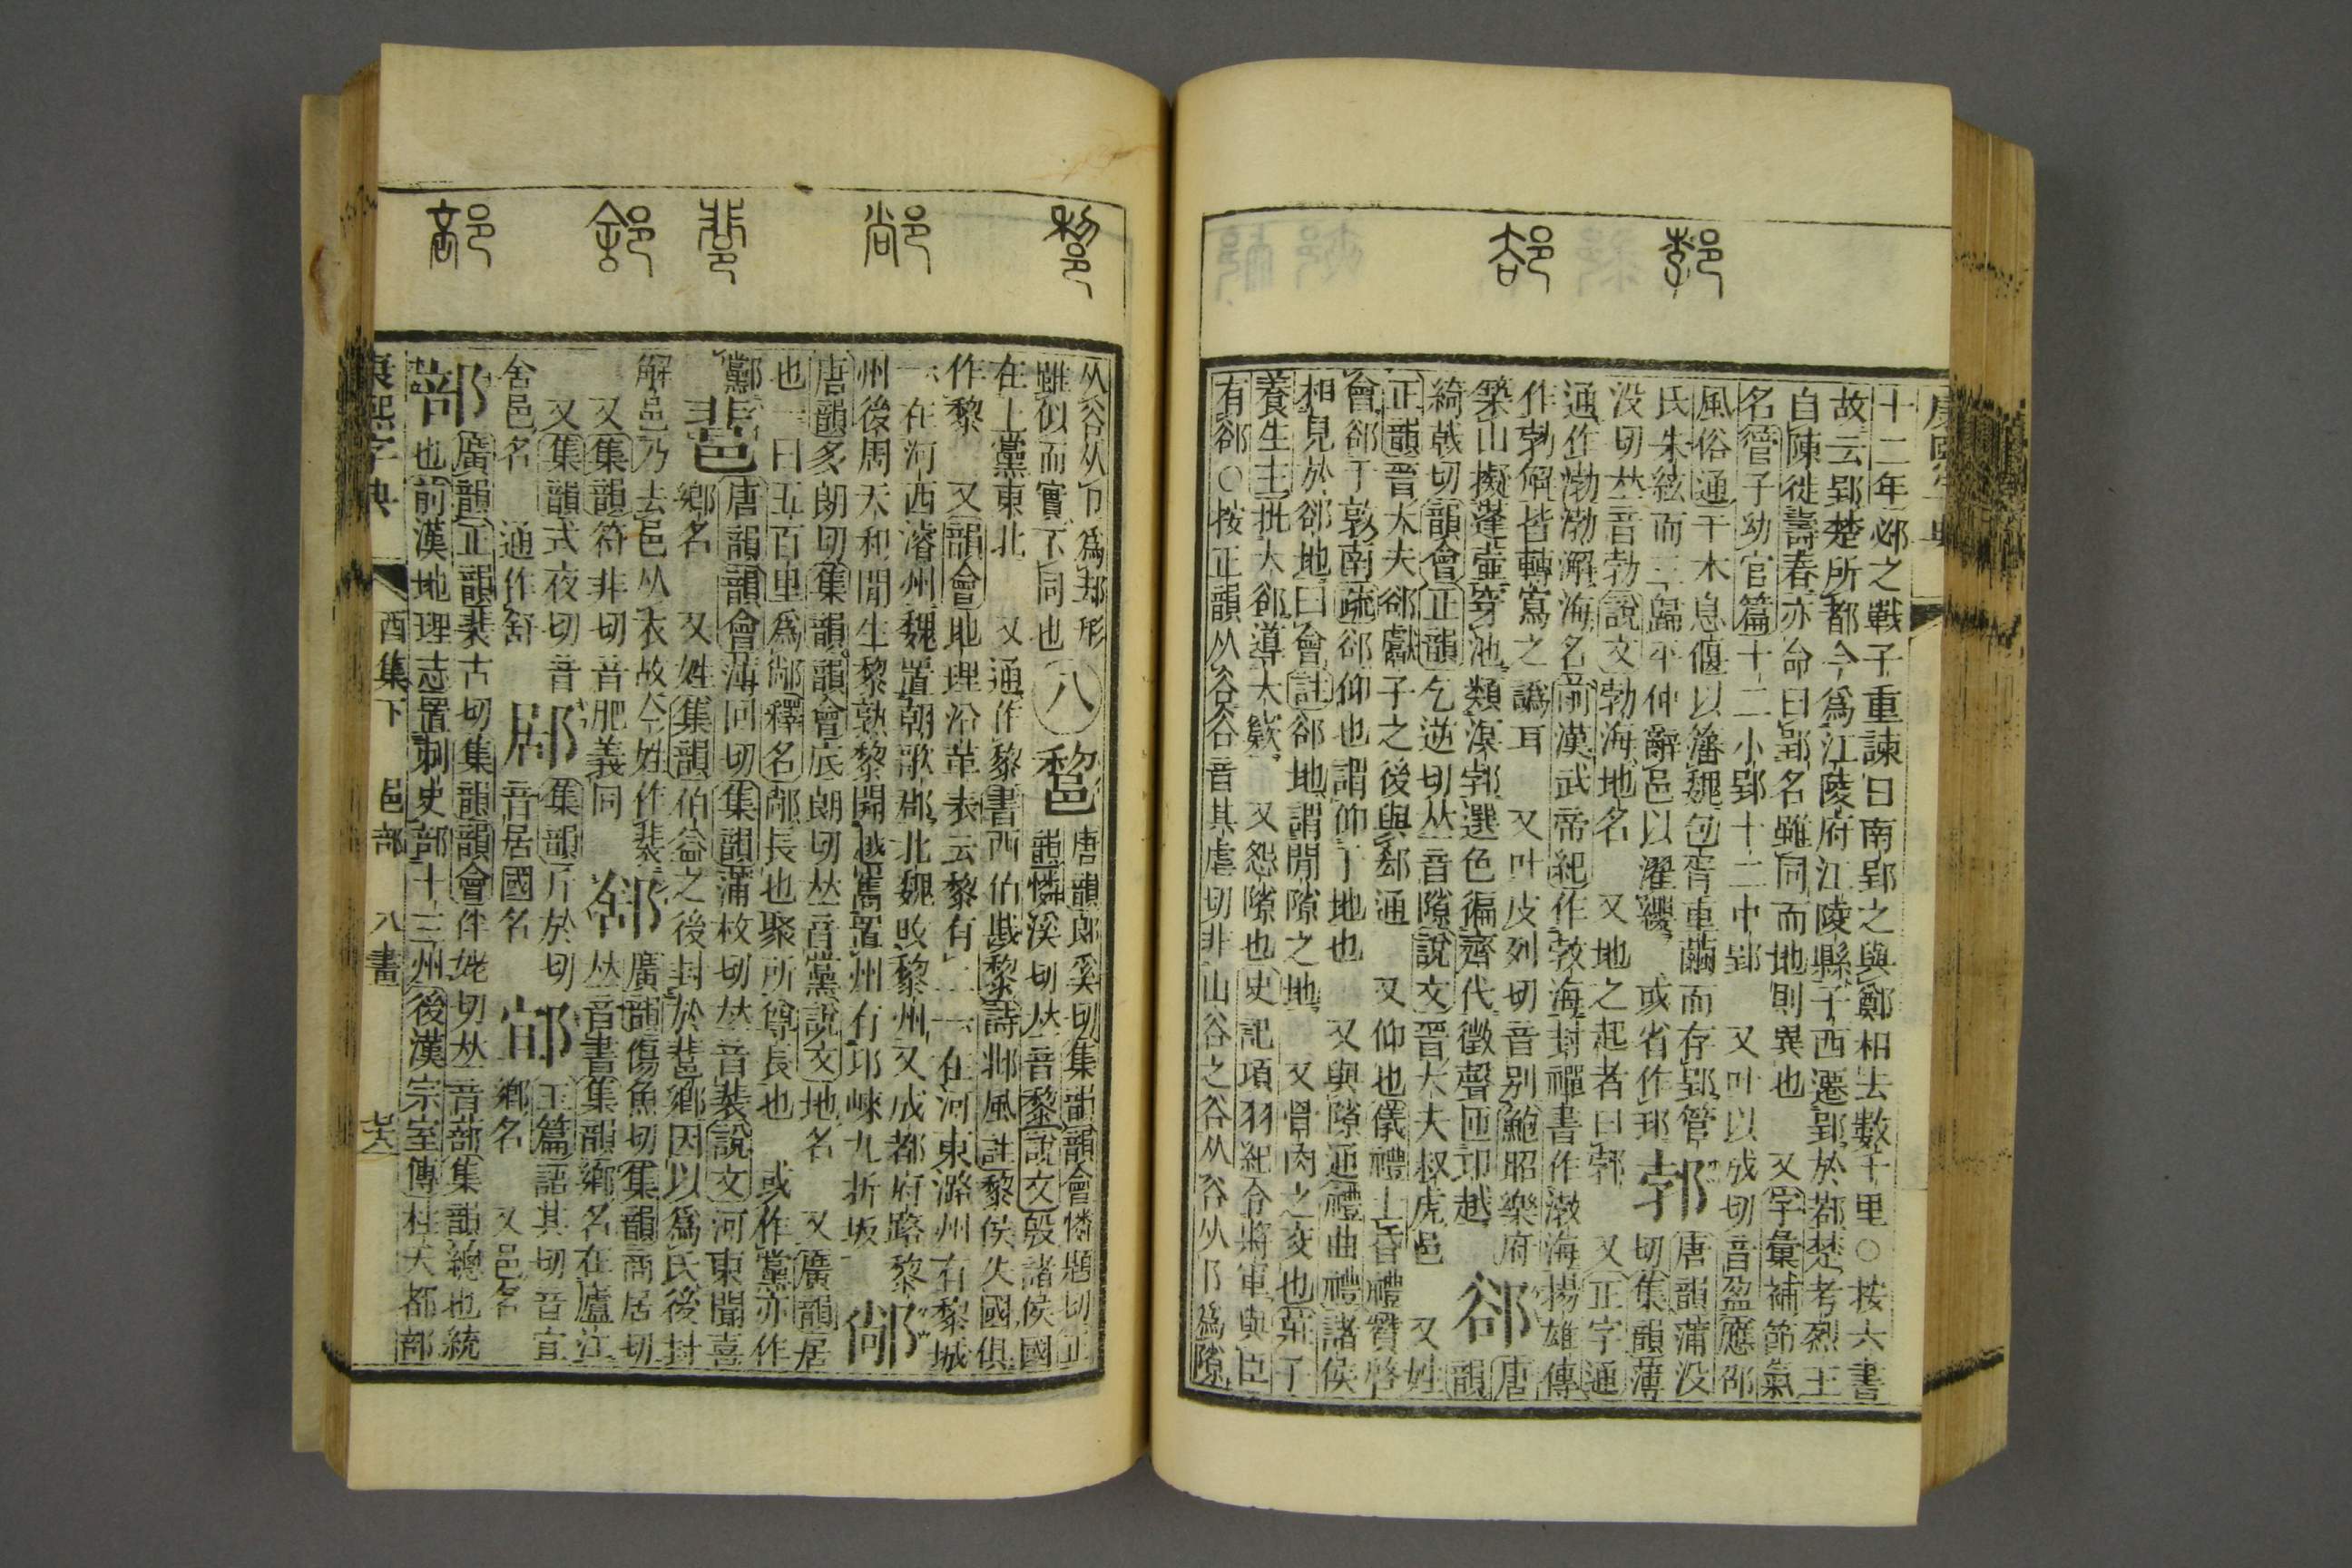 郣 郤
十二年邲之戰子重諫曰南郢之與鄭相去數千里○按六書
故云郢楚所都今爲江陵府江陵縣子西遷郢於鄀楚考烈王
自陳徙壽春亦命曰郢名雖同而地則異也 又字彙補節氣
名管子幼官篇十二小郢十二中郢 又叶以成切音盈應邵
風俗通干木息偃以籓魏包胥重繭而存郢管 郣 唐韻蒲没
氏朱絃而三歸平仲辭邑以濯纓 或省作 切集韻薄
没切𠀤音勃說文郣海地名 又地之起者曰郣 又正字通
通作渤渤澥海名前漢武帝紀作敦海封禪書作渤海揚雄傳
作勃解皆轉寫之譌耳 又叶皮列切音別鮑昭樂府 郤 唐
築山擬蓬壺穿池類溟郣選色徧齊代徵聲匝卭越 韻
綺戟切韻會正韻乞逆切𠀤音隙說文晉大夫叔虎邑 又姓
正韻晉大夫郤獻子之後與郄通 又仰也儀禮士昏禮贊啓
會郤于敦南疏郤仰也謂仰于地也 又與隙通禮曲禮諸侯
相見於郤地曰會註郤地謂閒隙之地 又骨肉之交也莊子
養生主批大郤導大窾 又怨隙也史記項羽紀令將軍與臣
有郤○按正韻从谷谷音其虐切非山谷之谷从谷从卩爲隙
黎 鄗 裴 䣄 部
从谷从卩爲邦形
雖似而實不同也 八 𨛫 唐韻郎奚切集韻韻會憐題切正
韻憐溪切𠀤音黎說文殷諸侯國
在上黨東北 又通作黎書西伯戡黎詩邶風註黎侯失國俱
作黎 又韻會地理沿革表云黎有二一在河東潞州有黎城
一在河西濬州魏置朝歌郡北魏改黎州又成都府路黎
州後周天和閒生黎熟黎開越巂置州有邛崍九折坂
唐韻多朗切集韻韻會底朗切𠀤音黨說文地名 又廣韻居
也一曰五百里爲鄗釋名鄗長也聚所尊長也 或作黨亦作
䣊 唐韻韻會薄回切集韻蒲枚切𠀤音裴說文河東聞喜
鄉名 又姓集韻伯益之後封於𨛬鄉因以爲氏後封
解邑乃去邑从衣故今姓作裴 䣄 廣韻傷魚切集韻商居切
又集韻符非切音肥義同 𠀤音書集韻鄉名在廬江
又集韻式夜切音 𨛮 集韻斤於切 𨛱 玉篇語其切音宜
舍邑名 通作舒 音居國名 鄉名 又邑名
部 廣韻正韻裴古切集韻韻會伴姥切𠀤音蔀集韻總也統
也前漢地理志置刺史部十三州後漢宗室傳柱天都部
康熙字典 酉集下 邑部 八畫 七六